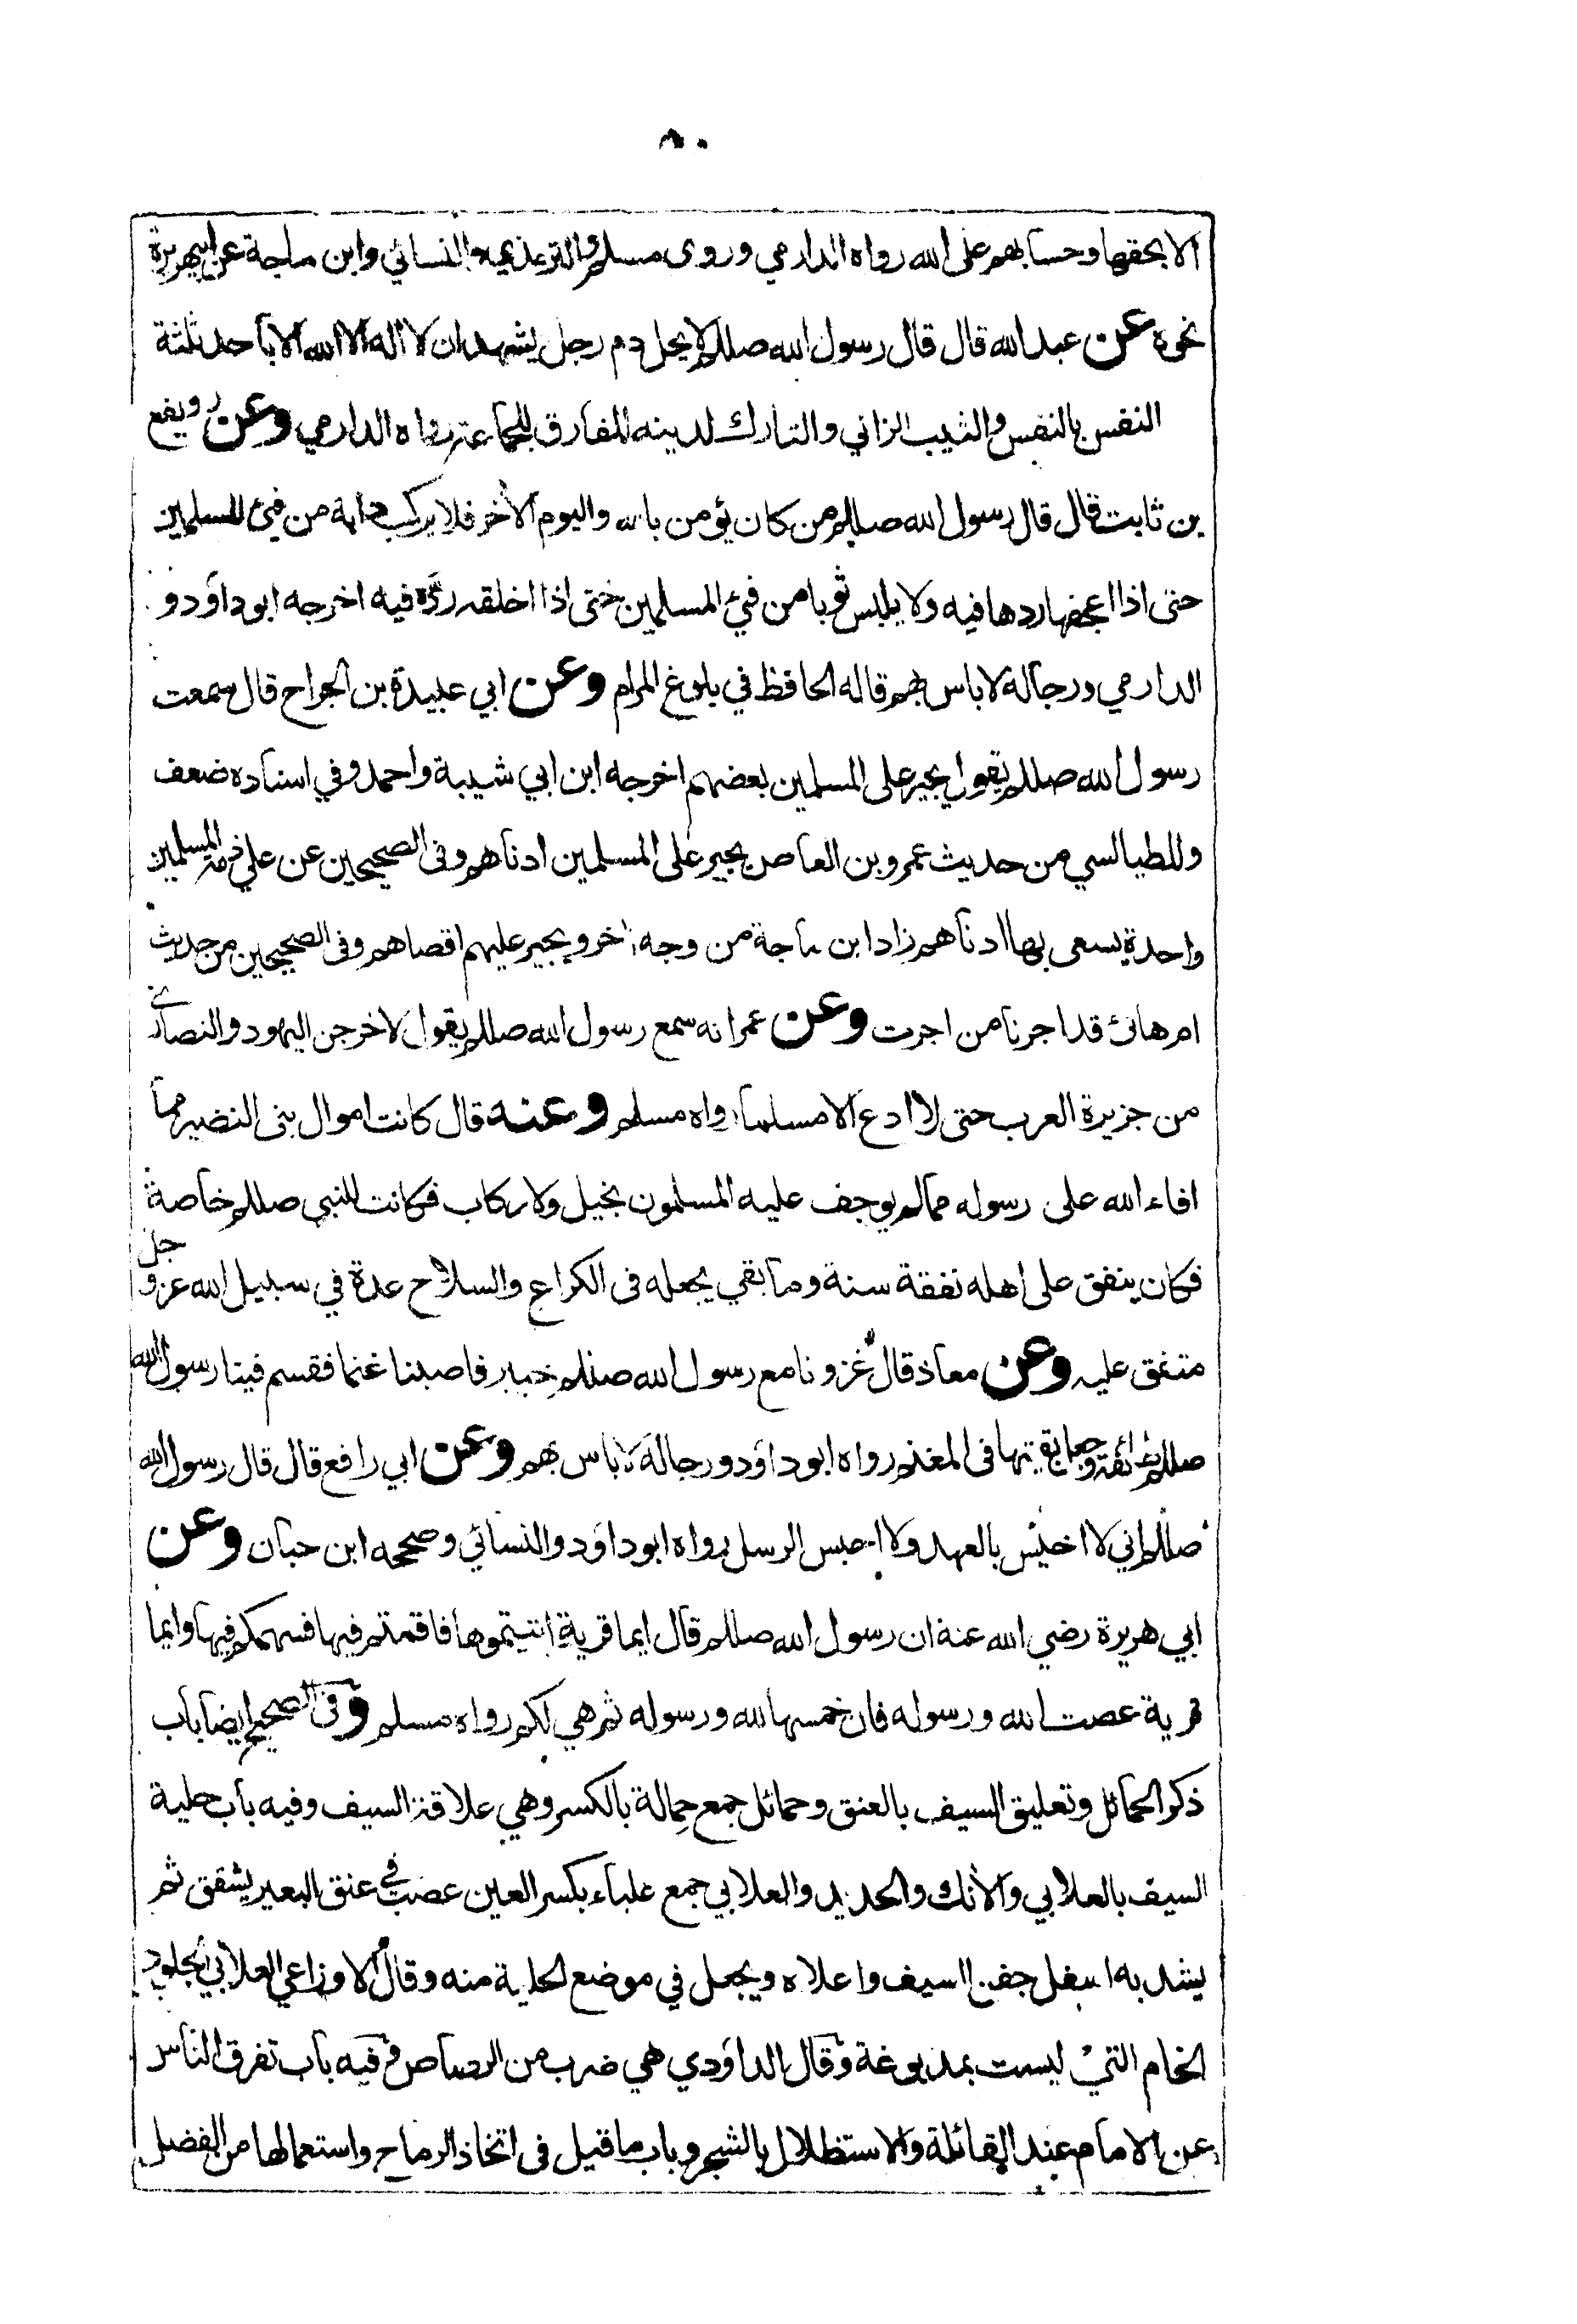 ٨٠
الا بحقها وحسابهم على الله رواه الدارمي وروى مسلم والترمذي والنسائي وابن ماجة عن ابي هريرة
نحوه عن عبد الله قال قال رسول الله صللم لا يحل دم رجل يشهد ان لا اله الا الله الا باحد ثلثة
النفس بالنفس والثيب الزاني والتارك لدينه المفارق للجماعة رواه الدارمي وعن رويفع
بن ثابت قال قال رسول الله صللم من كان يؤمن بالله واليوم الآخر فلا يركب دابة من فيئ المسلمين
حتى اذا اعجفها ردها فيه ولا يلبس ثوبا من فيئ المسلمين حتى اذا اخلقه رده فيه اخرجه ابو داود و
الدارمي ورجاله لا باس بهم قاله الحافظ في بلوغ المرام وعن ابي عبيدة بن الجراح قال سمعت
رسول الله صللم يقول يجير على المسلمين بعضهم اخرجه ابن ابي شيبة واحمد وفي اسناده ضعف
وللطيالسي من حديث عمرو بن العاص يجير على المسلمين ادناهم وفى الصحيحين عن علي ذمة المسلمين
واحدة يسعى بها ادناهم زاد ابن ماجة من وجه اخر ويجير عليهم اقصاهم وفى الصحيحين من حديث
ام هانئ قد اجرنا من اجرت وعن عمر انه سمع رسول الله صللم يقول لاخرجن اليهود والنصارى
من جزيرة العرب حتى لا ادع الا مسلما رواه مسلم وعنه قال كانت اموال بنى النضير مما
افاء الله على رسوله مما لم يوجف عليه المسلمون بخيل ولا ركاب فكانت للنبي صللم خاصة
فكان ينفق على اهله نفقة سنة وما بقي يجعله فى الكراع والسلاح عدة في سبيل الله عز وجل
متفق عليه وعن معاذ قال غزونا مع رسول الله صللم خيبر فاصبنا غنما فقسم فينا رسول الله
صللم طائفة وجعل بقيتها فى المغنم رواه ابو داود ورجاله لا باس بهم وعن ابي رافع قال قال رسول الله
صللم اني لا اخيس بالعهد ولا احبس الرسل رواه ابو داود والنسائي وصححه ابن حبان وعن
ابي هريرة رضي الله عنه ان رسول الله صللم قال ايما قرية اتيتموها فاقمتم فيها فسهمكم فيها وايما
قرية عصت الله ورسوله فان خمسها لله ورسوله ثم هي لكم رواه مسلم وفى الصحيح ايضا باب
ذكر الحمائل وتعليق السيف بالعنق وحمائل جمع حمالة بالكسر وهي علاقة السيف وفيه باب حلية
السيف بالعلابي والآنك والحديد والعلابي جمع علباء بكسر العين عصب في عنق البعير يشقق ثم
يشد به اسفل جفن السيف واعلاه ويجعل في موضع الحلية منه وقال الاوزاعي العلابي الجلود
الخام التي ليست بمدبوغة وقال الداودي هي ضرب من الرصاص وفيه باب تفرق الناس
عن الامام عند القائلة والاستظلال بالشجر وباب ما قيل فى اتخاذ الرماح واستعمالها من الفضل